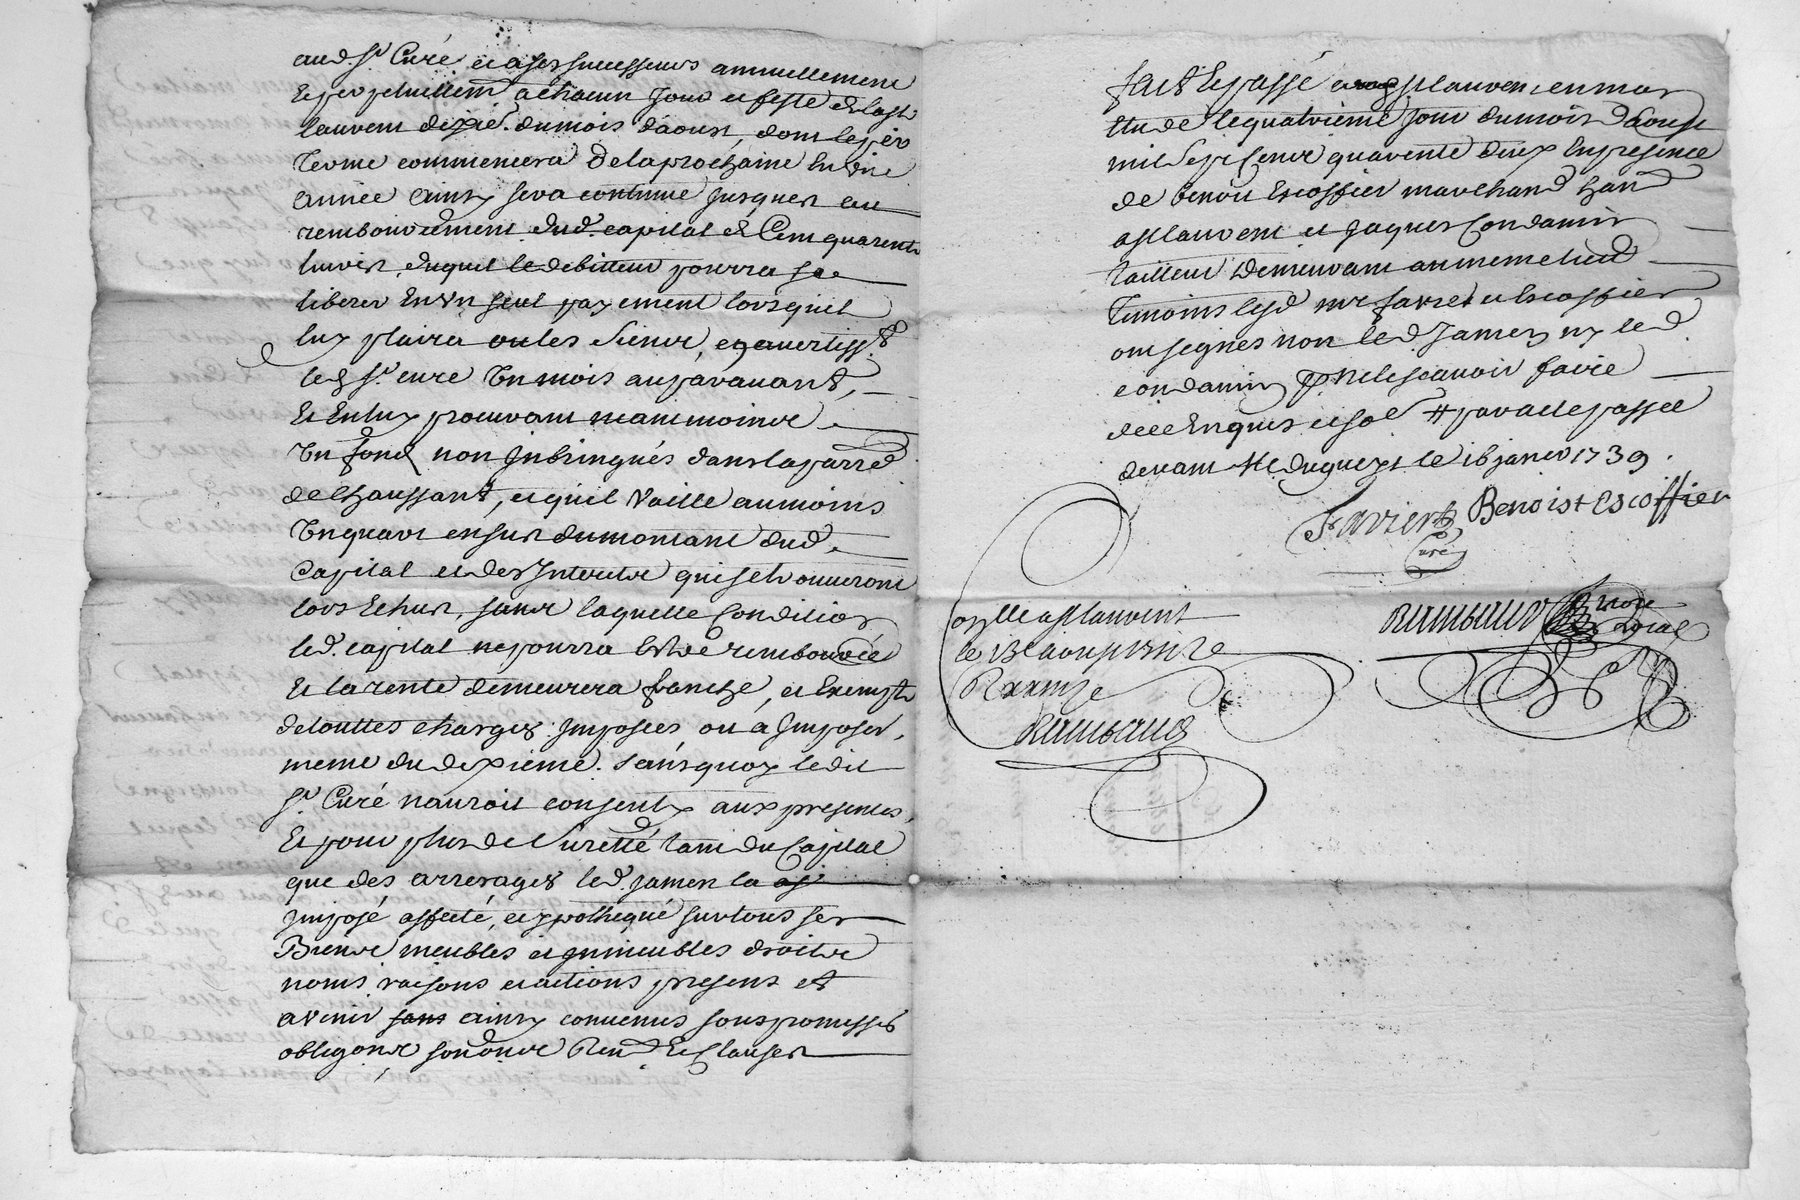 aud. Sr. Curé et a ses successeurs annuellement
Et perpetuellemt a chacun jour et feste de la St
Laurent dixie. du mois d'aoust, dont le per
terme commencera de la prochaine en une
année ainsy sera continué jusques au
remboursement dud. capital de Cent quarente
livres, duquel le debitteur pourra se
liberer En un seul payement lorsquil
luy plaira ou les siens, en avertisst
led Sr. curé un mois auparavant,
Et En luy prouvant neantmoins
un fond non hinbringués dans la parre
de Chaussant, et quil vaille au moins
un quart en sus du montant dud.
Capital et des Interets qui se trouveront
lors Echus, sans laquelle Condition
led. capital ne pourra Estre remboursé
Et la rente demeurera franche, et Exempte
de touttes charges imposées, ou a Imposer,
meme du dixieme. sans quoy ledit
Sr. Curé nauroit consenty aux presentes,
Et pour plus de suretté tant du Capital
que des arrerages led. jamen la
imposé affecté, et ypothequé sur tous ses
Biens meubles et immeubles droits
noms raisons et actions presens et
avenir sans ainsy convenus sous promesses
obligons Renon Et Clauses
fait Et passé a St Laurent en mon
Etude le quatrieme jour du mois daoust
mil Sept Cent quarente deux En presence
de benoit Escoffier marchand
a St Laurent et Jaques Condamin
tailleur demeurant au meme lieu
temoins lesd mre favier et Escoffier
ont signés non led Jamen ny led
condamin pr ne le scavoir faire
de ce Enquis et so # par acte passée
devant Me duguey le 16 janer 1739.
Favier Benoist Escoffier
Curé
Colle a St Laurent
le 13e aoust 1742
R
Raimbaud
Raimbaud Nore
Royal